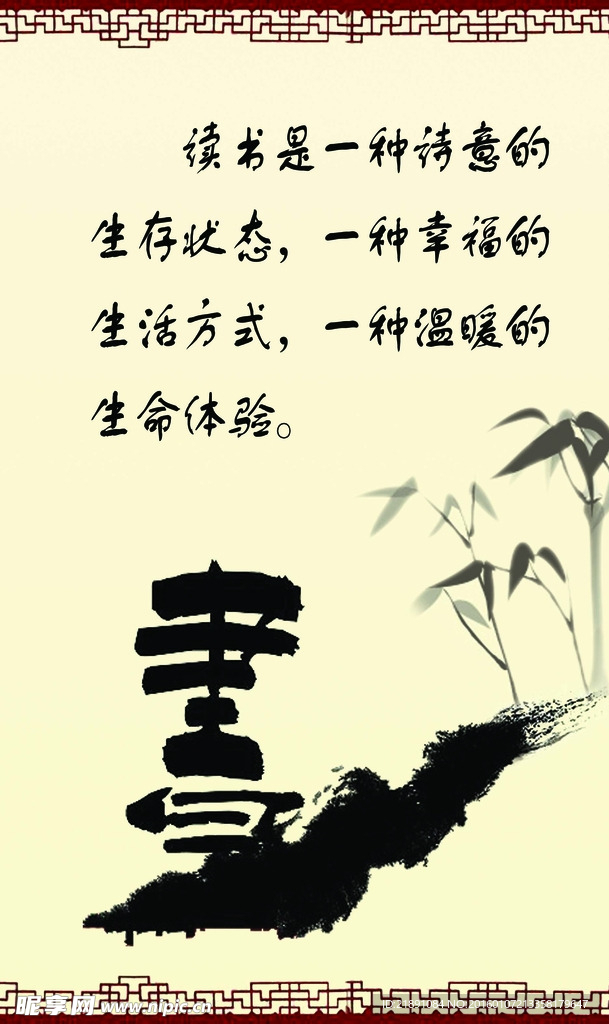 读书是一种诗意的
生存状态，一种幸福的
生活方式，一种温暖的
生命体验。
書
昵享网 www.nipic.cn
ID:21891084 NO:20160107213358179647